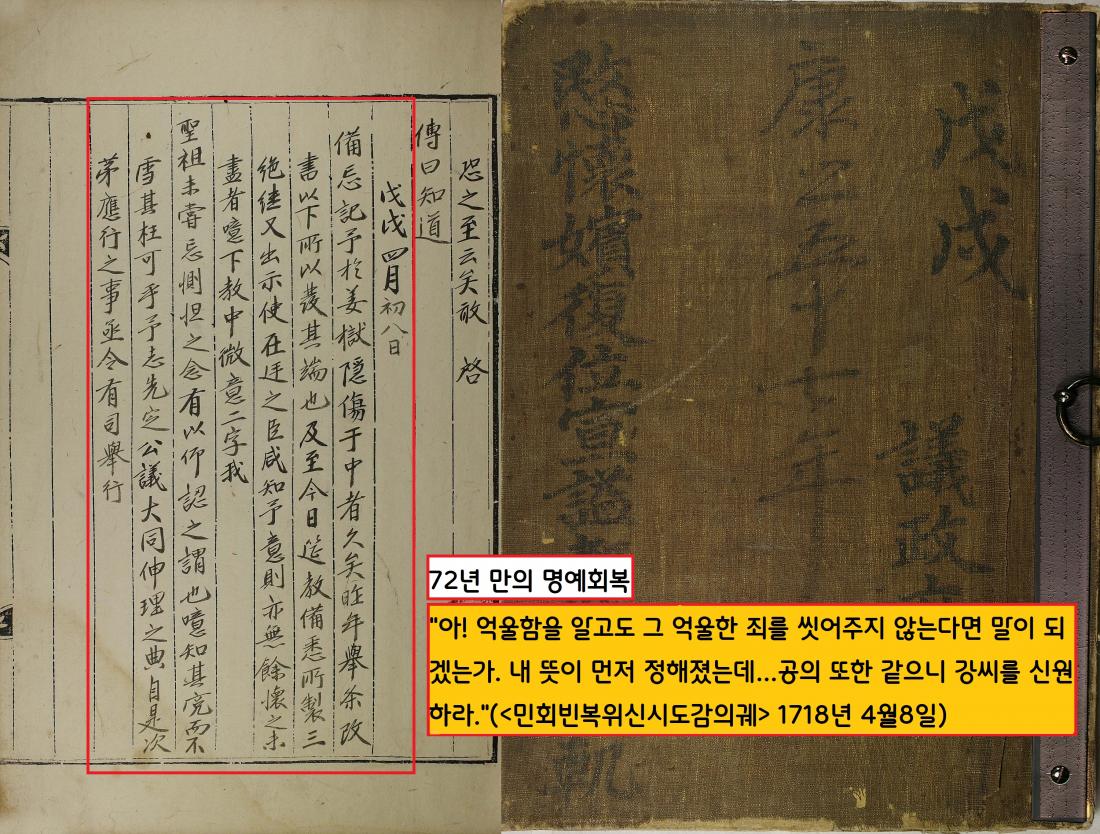 恐之至云矣敢 啓
傳曰知道
戊戌四月初八日
備忘記予於姜獄隱傷于中者久矣昨年擧条改
書以下所以發其端也及至今日筵教備悉所製三
絶继又出示使在廷之臣咸知予意則亦無餘懷之未
盡者噫下教中微意二字我
聖祖未嘗忘惻怛之念有以仰認之謂也噫知其寃而不
雪其枉可乎予志先定公議大同伸理之典自是次
苐應行之事亟令有司擧行
戊戌
議政
康熙五十七年
愍懷嬪復位宣諡
軌
72년 만의 명예회복
"아! 억울함을 알고도 그 억울한 죄를 씻어주지 않는다면 말이 되
겠는가. 내 뜻이 먼저 정해졌는데...공의 또한 같으니 강씨를 신원
하라."(<민회빈복위신시도감의궤> 1718년 4월8일)